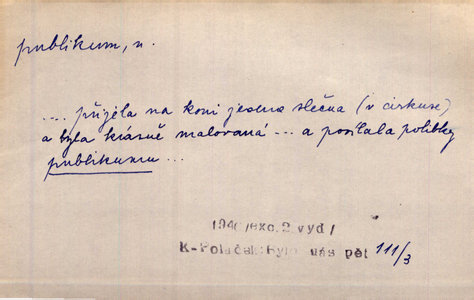 publikum, n.
.... přijela na koni jedna slečna (v cirkuse)
a byla krásně malovaná ... a posílala polibky
publikumu ...
1946/exc. 2. vyd/
K-Poláček: Bylo nás pět 111/3